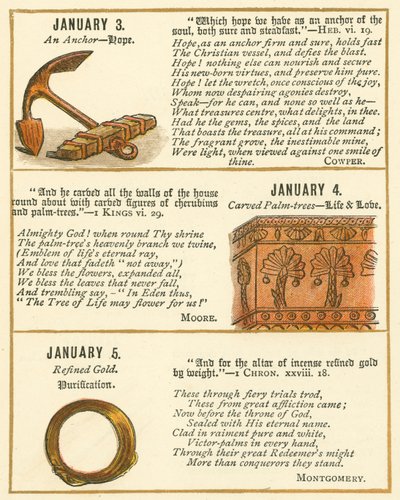 JANUARY 3.
An Anchor—Hope.
"Which hope we have as an anchor of the
soul, both sure and steadfast."—Heb. vi. 19.
Hope, as an anchor firm and sure, holds fast
The Christian vessel, and defies the blast.
Hope! nothing else can nourish and secure
His new-born virtues, and preserve him pure.
Hope! let the wretch, once conscious of the joy,
Whom now despairing agonies destroy,
Speak—for he can, and none so well as he—
What treasures centre, what delights, in thee.
Had he the gems, the spices, and the land
That boasts the treasure, all at his command;
The fragrant grove, the inestimable mine,
Were light, when viewed against one smile of
thine. Cowper.
"And he carved all the walls of the house
round about with carved figures of cherubims
and palm-trees."—1 Kings vi. 29.
Almighty God! when round Thy shrine
The palm-tree's heavenly branch we twine,
(Emblem of life's eternal ray,
And love that fadeth "not away,")
We bless the flowers, expanded all,
We bless the leaves that never fall,
And trembling say,—"In Eden thus,
"The Tree of Life may flower for us!"
Moore.
JANUARY 4.
Carved Palm-trees—Life & Love.
JANUARY 5.
Refined Gold.
Purification.
"And for the altar of incense refined gold
by weight."—1 Chron. xxviii. 18.
These through fiery trials trod,
These from great affliction came;
Now before the throne of God,
Sealed with His eternal name.
Clad in raiment pure and white,
Victor-palms in every hand,
Through their great Redeemer's might
More than conquerors they stand.
Montgomery.